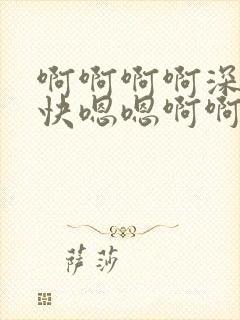 啊啊啊啊深
快嗯嗯啊啊
萨莎